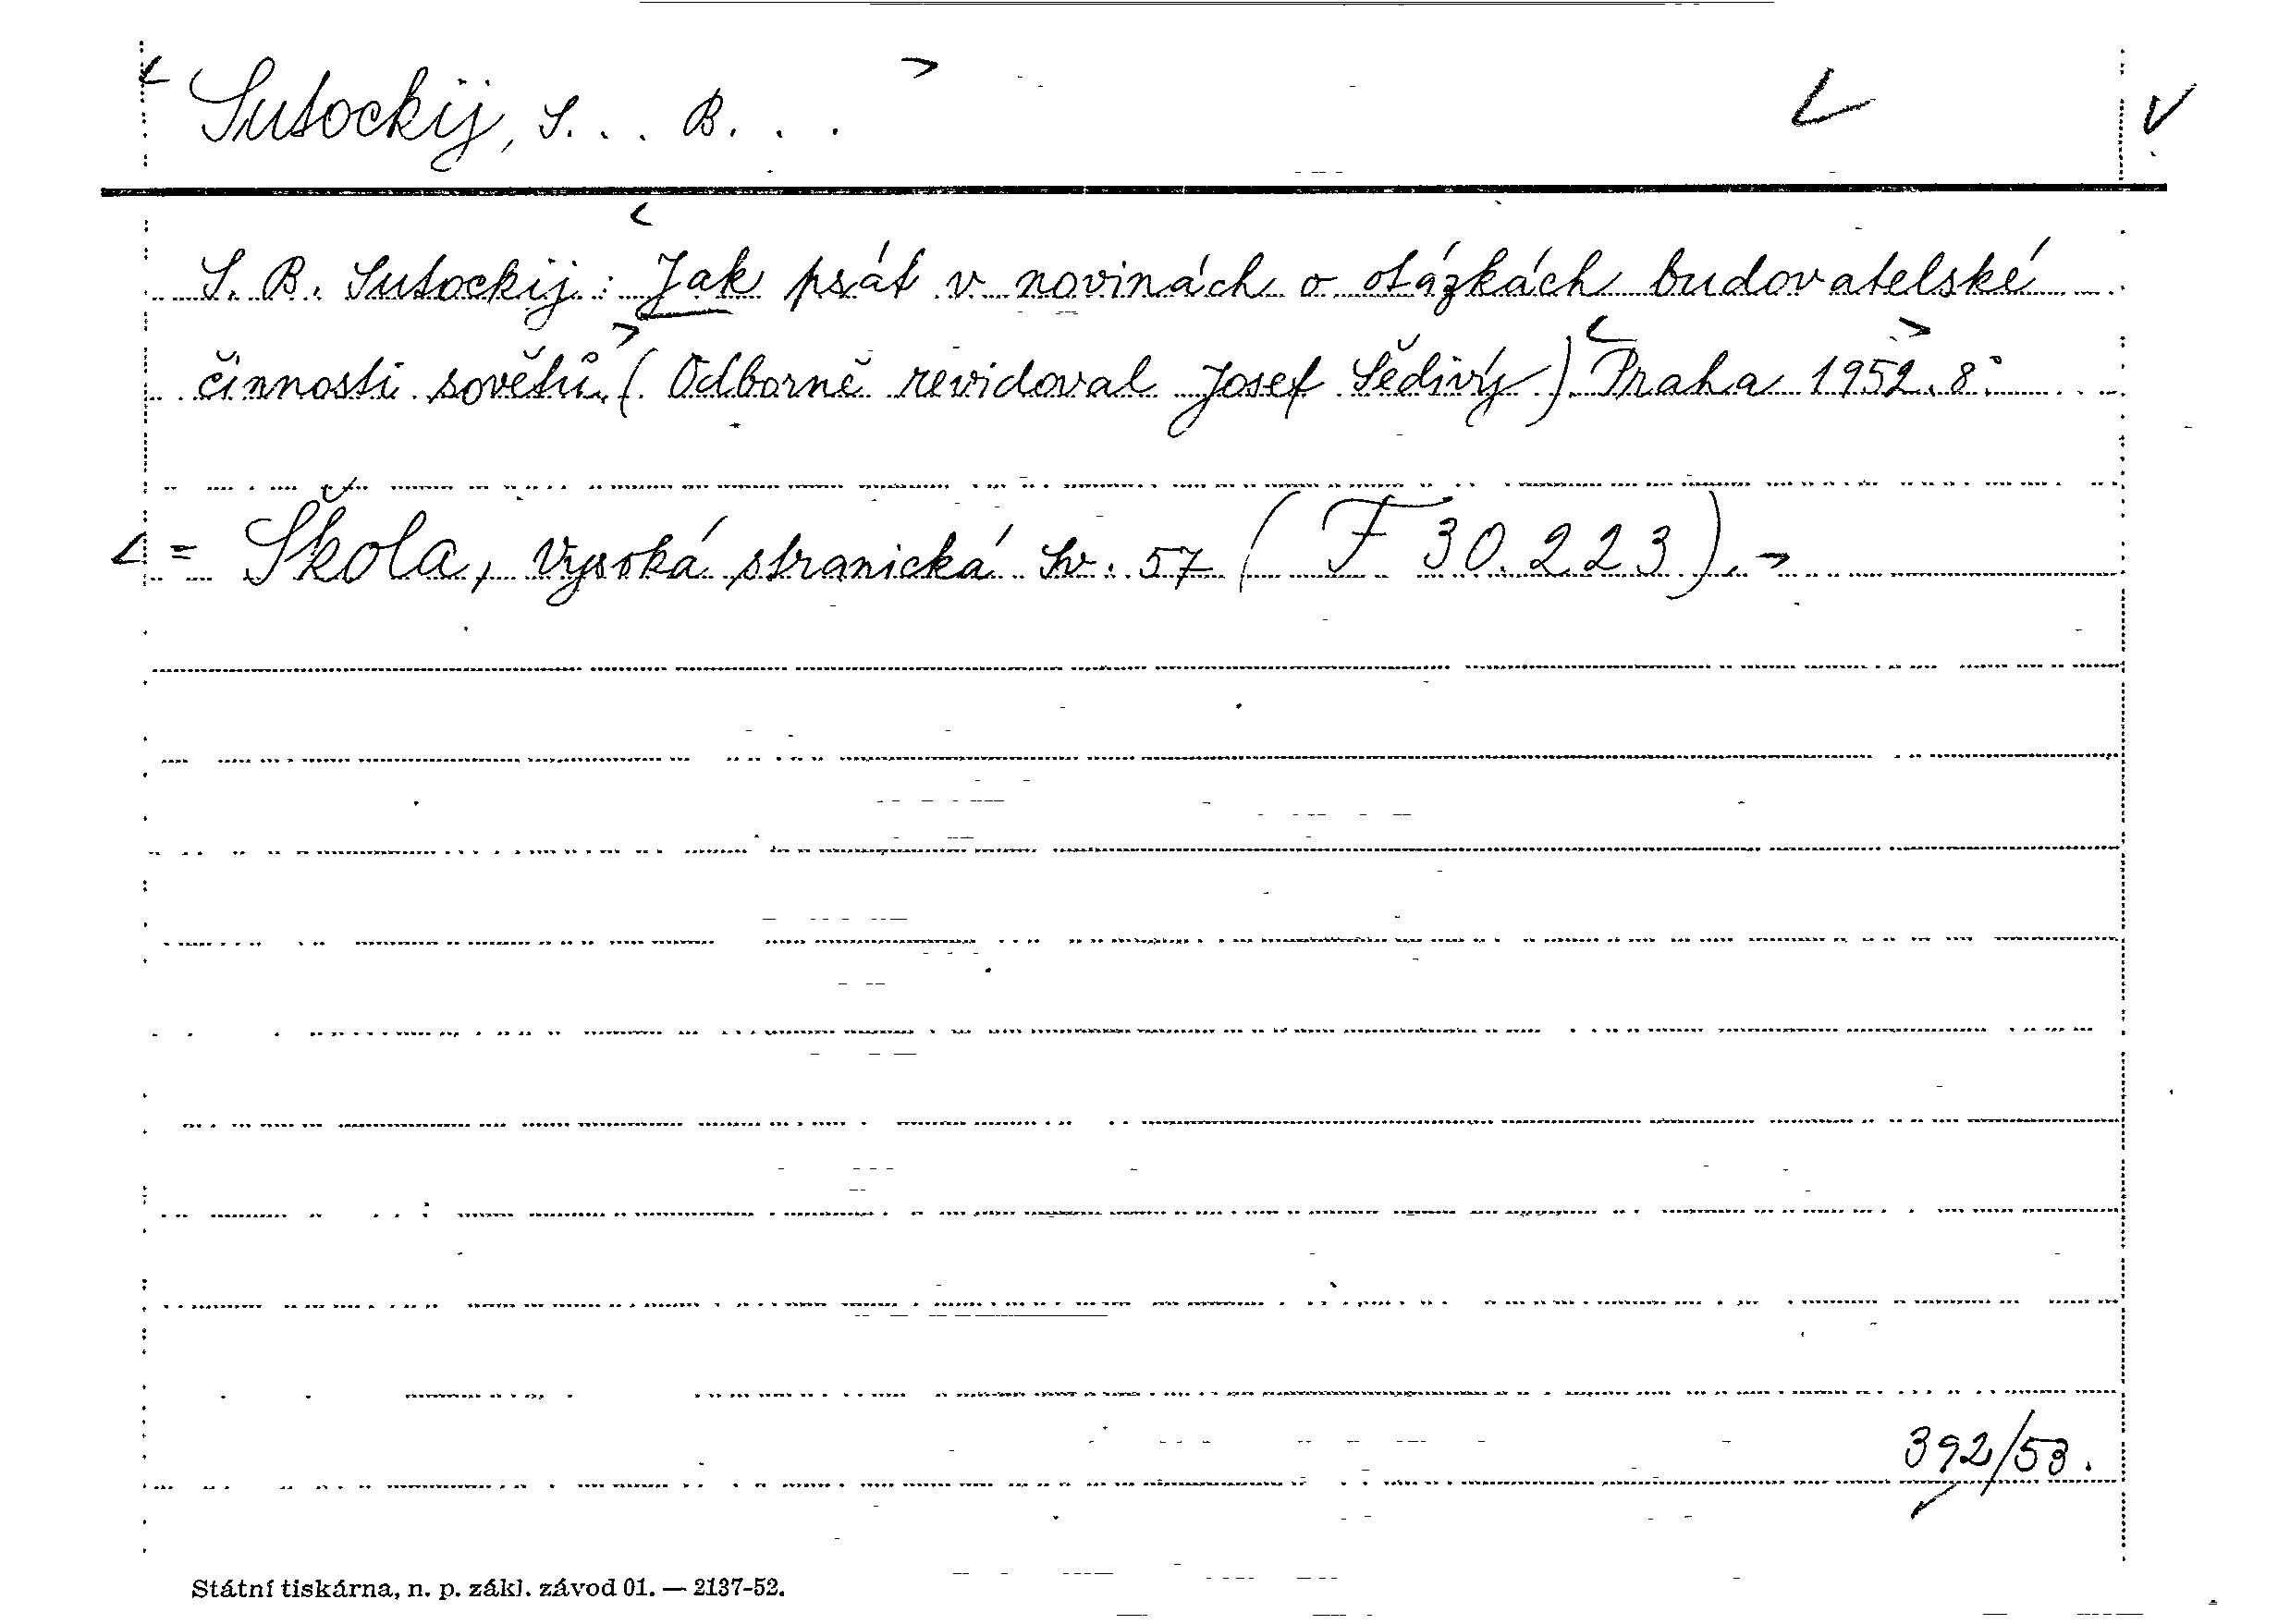 Sutockij, S... B...
S. B. Sutockij: Jak psát v novinách o otázkách budovatelské
činnosti sovětů. (Odborně revidoval Josef Šedivý). Praha 1952. 8°
= Škola, Vysoká stranická Sv. 57 (F 30.223).
392/53.
Státní tiskárna, n. p. zákl. závod 01. — 2137-52.